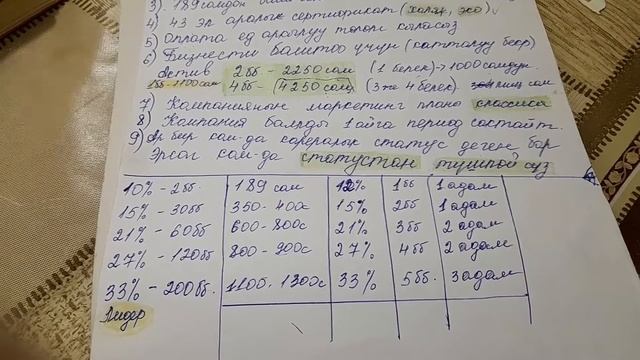 3). 189 сомдон
4) 43 эл аралык сертификат (халал, эко)
5) Оплата ед аркылуу толом кыласыз
6) Бизнести баштоо учун (катталуу берс)
Актив 2бб - 2250 сом (1 берек) → 1000 сомдук
1бб - 1100 сом 4бб - 4250 сом (3 же 4 берек) сом
7) Компаниянын маркетинг планы классика
8) Компания балды 1 айга период сактайт.
9) Ар бир компа-да карералык статус деген бар
Эрсаг ком-да статустан тушпой суз
10% - 2бб. 189 сом 12% 1бб 1 адам
15% - 30бб 350 - 40с 15% 2бб 1 адам
21% - 60бб 600 - 800с 21% 3бб 2 адам
27% - 120бб 800 - 900с 27% 4бб 2 адам
33% - 200бб. 1100 - 1300с 33% 5бб. 3 адам
Лидер